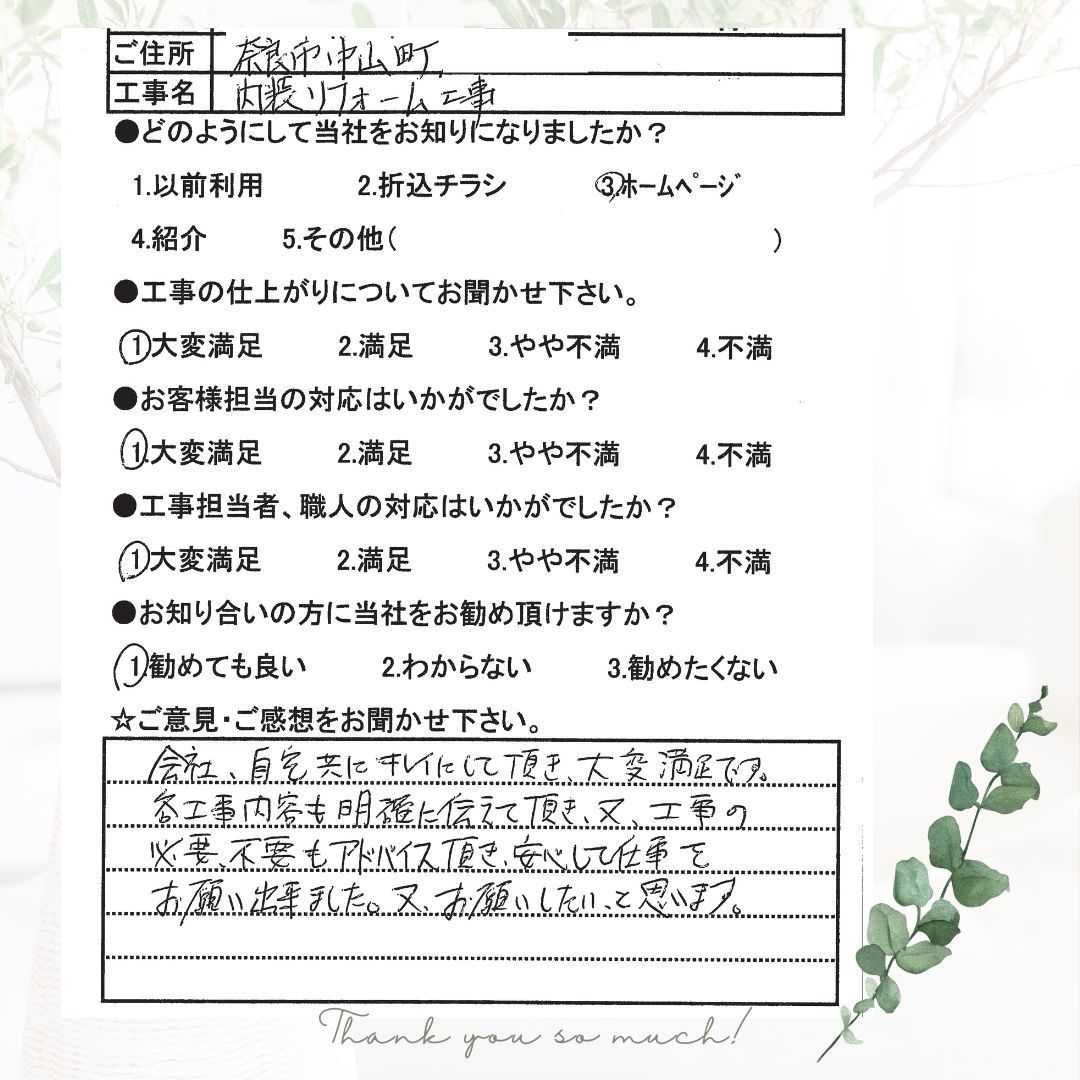 ご住所 奈良市中山町
工事名 内装リフォーム工事
●どのようにして当社をお知りになりましたか？
1.以前利用 2.折込チラシ 3.ホームページ
4.紹介 5.その他( )
●工事の仕上がりについてお聞かせ下さい。
1大変満足 2.満足 3.やや不満 4.不満
●お客様担当の対応はいかがでしたか？
1.大変満足 2.満足 3.やや不満 4.不満
●工事担当者、職人の対応はいかがでしたか？
1大変満足 2.満足 3.やや不満 4.不満
●お知り合いの方に当社をお勧め頂けますか？
1勧めても良い 2.わからない 3.勧めたくない
☆ご意見・ご感想をお聞かせ下さい。
会社、自宅共にキレイにして頂き、大変満足です。
各工事内容も明確に伝えて頂き、又、工事の
必要、不要もアドバイス頂き、安心して仕事を
お願い出来ました。又、お願いしたい、と思います。
Thank you so much!